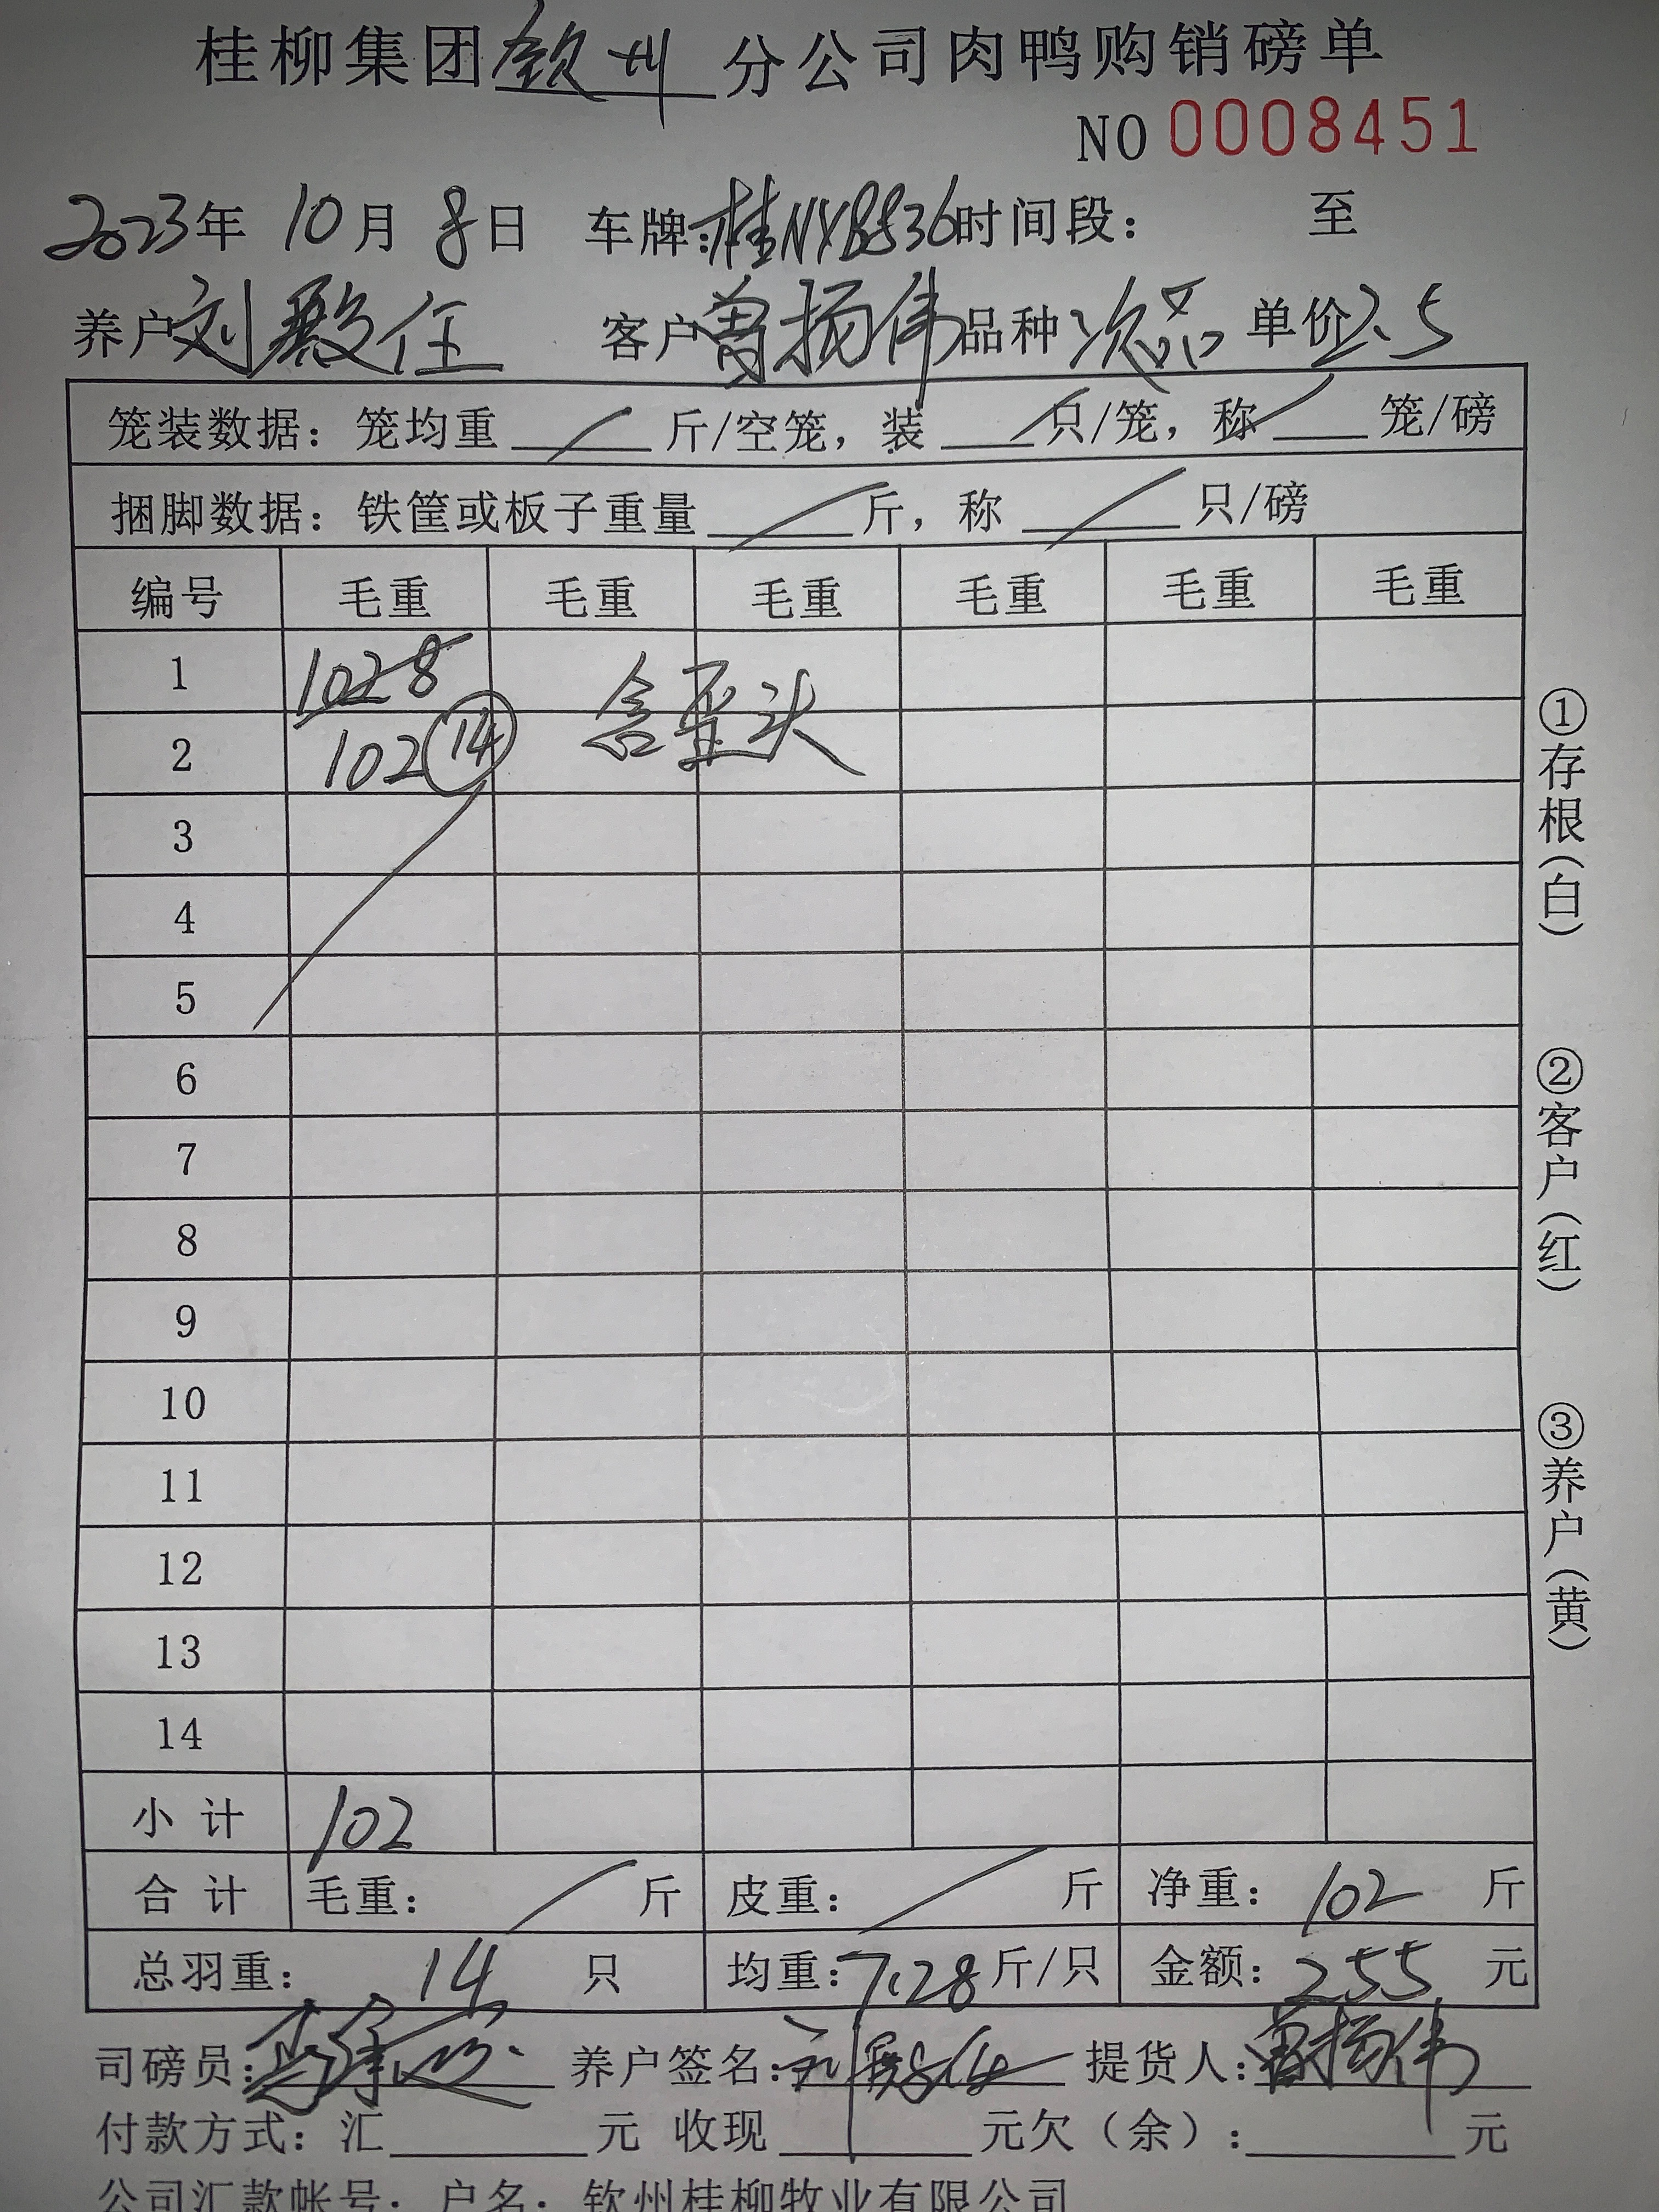 桂柳集团钦州分公司肉鸭购销磅单
NO 0008451
2023年 10月 8日 车牌:桂NYB836时间段: 至
养户刘殿任 客户曾扬伟品种次品 单价2.5
笼装数据: 笼均重 / 斤/空笼, 装 / 只/笼, 称 / 笼/磅
捆脚数据: 铁筐或板子重量 / 斤, 称 / 只/磅
编号 毛重 毛重 毛重 毛重 毛重 毛重
1 1028
2 102 14 含歪头
3
4
5
6
7
8
9
10
11
12
13
14
小计 102
合计 毛重: / 斤 皮重: / 斤 净重: 102 斤
总羽重: 14 只 均重:7.28斤/只 金额: 255 元
司磅员: 养户签名:刘殿任 提货人:曾扬伟
付款方式: 汇 元 收现 元欠(余): 元
公司汇款帐号: 户名: 钦州桂柳牧业有限公司
①存根(白)
②客户(红)
③养户(黄)